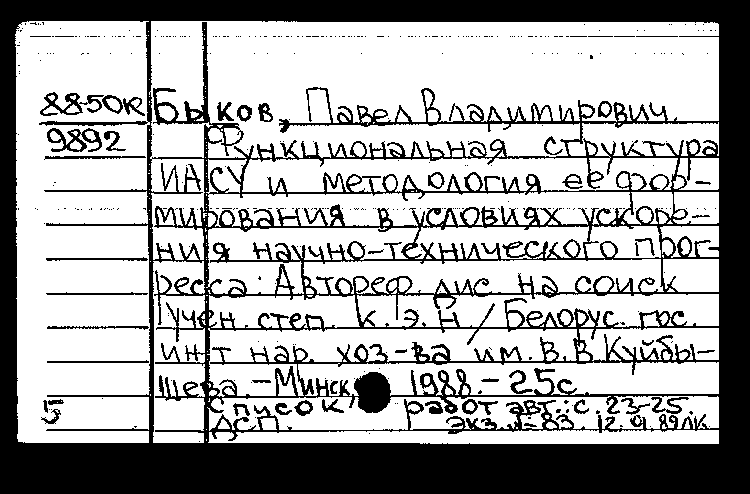 88-50К Быков, Павел Владимирович.
9892 Функциональная структура
ИАСУ и методология ее фор-
мирования в условиях ускоре-
ния научно-технического прог-
ресса: Автореф. дис. на соиск
учен. степ. к. э. н. / Белорус. гос.
ин-т нар. хоз-ва им. В. В. Куйбы-
шева. - Минск, 1988. - 25с.
5 Список работ авт.: с. 23-25.
ДСП. экз. № 83. 12. 89ЛК